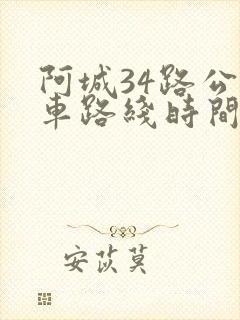 阿城34路公
車路綫時間
安苡莫